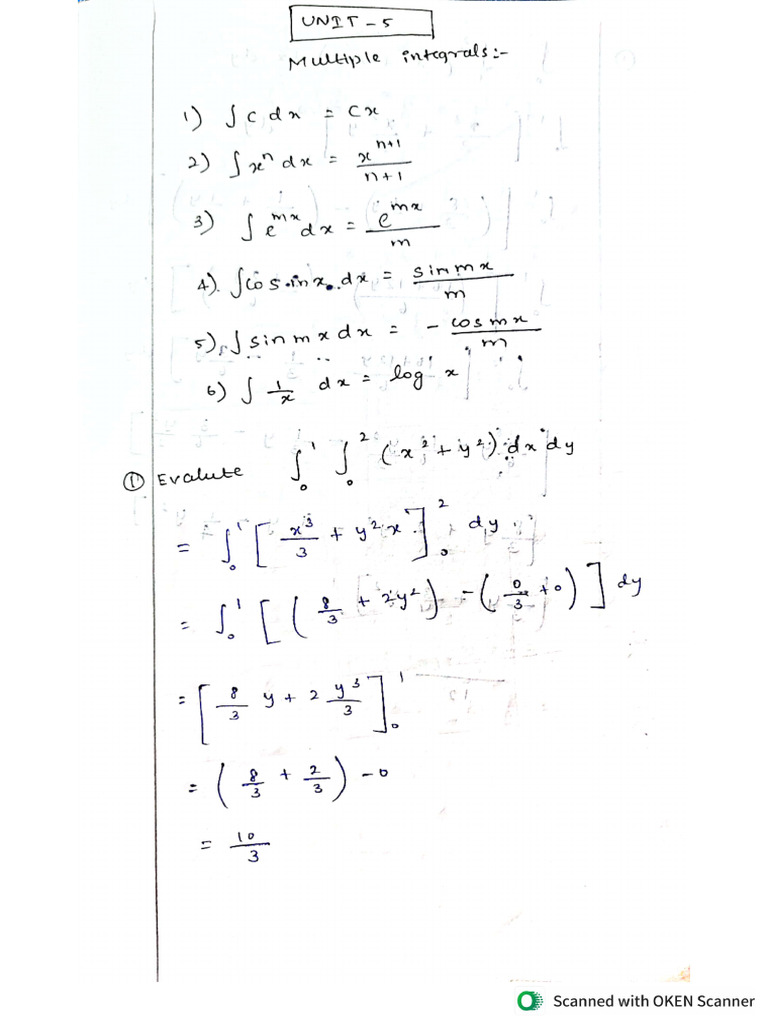 UNIT - 5
Multiple integrals:-
1) ∫ c dx = cx
2) ∫ xⁿ dx = x^(n+1) / (n+1)
3) ∫ e^(mx) dx = e^(mx) / m
4) ∫ cos mx dx = sin mx / m
5) ∫ sin mx dx = - cos mx / m
6) ∫ 1/x dx = log x
① Evalute ∫₀¹ ∫₀² (x² + y²) dx dy
= ∫₀¹ [ x³/3 + y²x ]₀² dy
= ∫₀¹ [ ( 8/3 + 2y² ) - ( 0/3 + 0 ) ] dy
= [ 8/3 y + 2 y³/3 ]₀¹
= ( 8/3 + 2/3 ) - 0
= 10/3
Scanned with OKEN Scanner